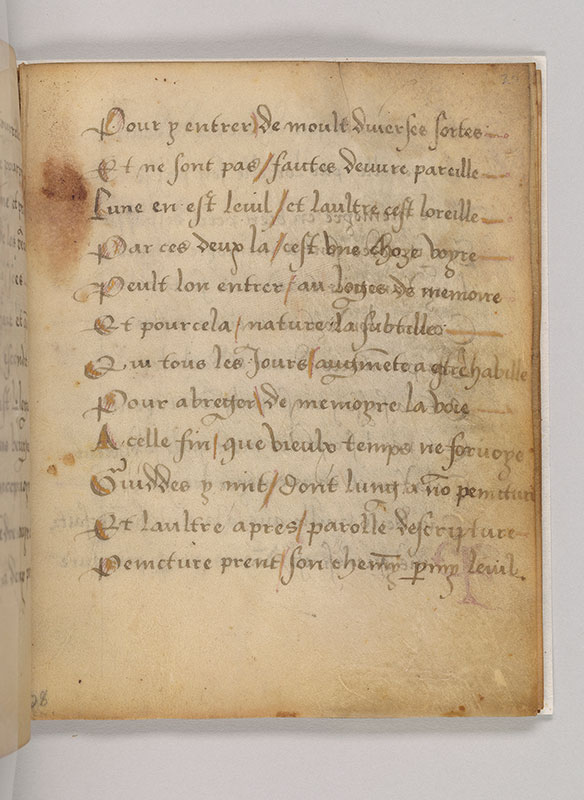 Pour y entrer / de moult diverses sortes
Et ne sont pas / faictes deuvre pareille
Lune en est leuil / et laultre cest loreille
Par ces deux la / cest une choze voyre
Peult lon entrer / au logys de memoire
Et pourcela / nature la subtille
Qui tous les Jours / augmẽte a estre habille
Pour abreger / de memoyre la voie
A celle fin / que vieulx temps ne forvoye
Guiddes y mit / dont lung a nõ peincture
Et laultre apres / parolle descripture
Peincture prent / son chemĩ parmy leuil.